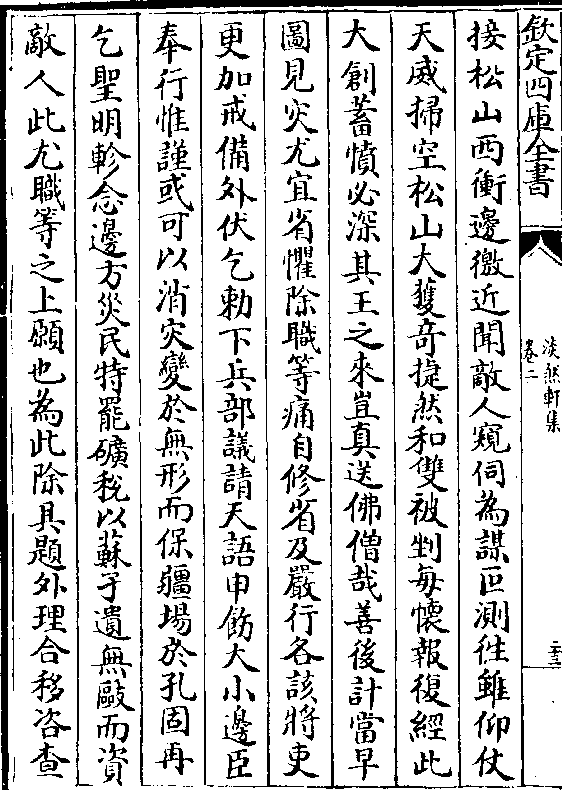 欽定四庫全書
淡然軒集
卷二
二十三
接松山西衝邊徼近聞敵人窺伺為謀叵測徃雖仰仗
天威掃空松山大獲奇捷然和雙被剉每懐報復經此
大創蓄憤必深其王之來豈真送佛僧哉善後計當早
圖見灾尤宜省懼除職等痛自修省及嚴行各該將吏
更加戒備外伏乞勅下兵部議請天語申飭大小邊臣
奉行惟謹或可以消灾變於無形而保疆場於孔固再
乞聖明軫念邊方災民特罷礦稅以蘇孑遺無敺而資
敵人此尤職等之上願也為此除具題外理合移咨查